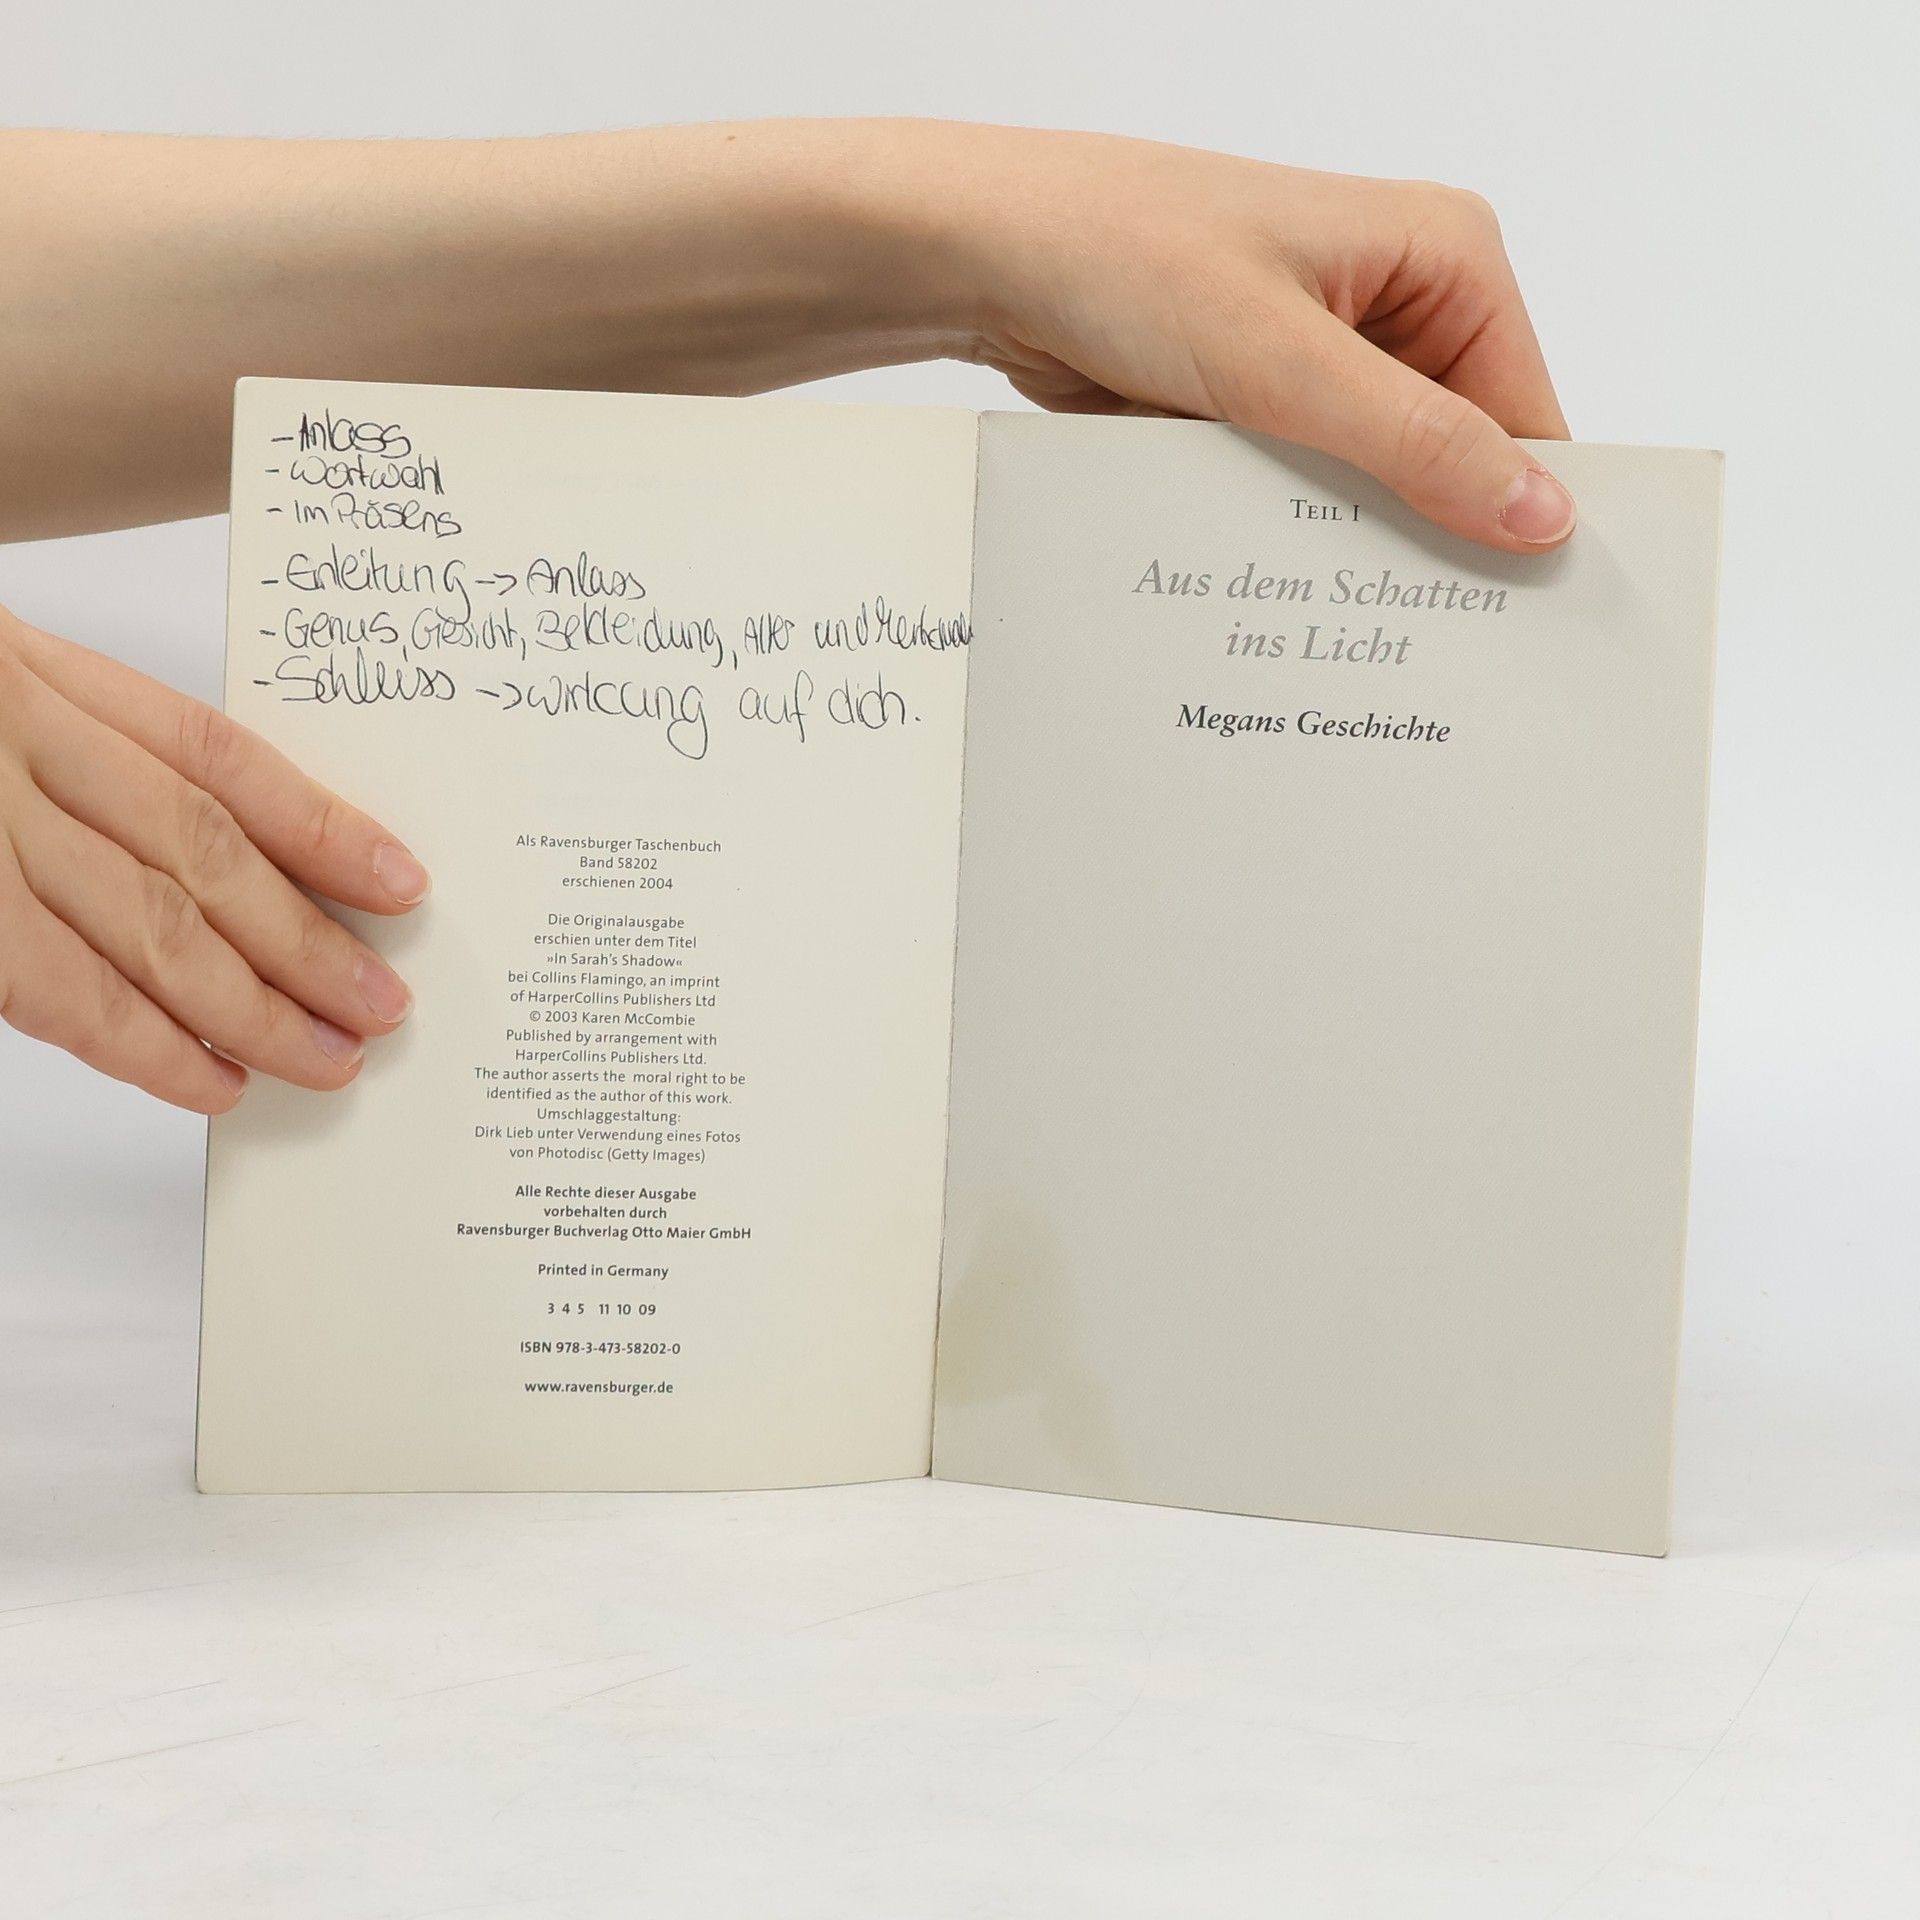 - Anlass
- Wortwahl
- im Präsens
- Einleitung -> Anlass
- Genus, Gesicht, Bekleidung, Alter und
- Schluss -> wirkung auf dich.
Als Ravensburger Taschenbuch
Band 58202
erschienen 2004
Die Originalausgabe
erschien unter dem Titel
»In Sarah's Shadow«
bei Collins Flamingo, an imprint
of HarperCollins Publishers Ltd
© 2003 Karen McCombie
Published by arrangement with
HarperCollins Publishers Ltd.
The author asserts the moral right to be
identified as the author of this work.
Umschlaggestaltung:
Dirk Lieb unter Verwendung eines Fotos
von Photodisc (Getty Images)
Alle Rechte dieser Ausgabe
vorbehalten durch
Ravensburger Buchverlag Otto Maier GmbH
Printed in Germany
3 4 5 11 10 09
ISBN 978-3-473-58202-0
www.ravensburger.de
TEIL I
Aus dem Schatten
ins Licht
Megans Geschichte